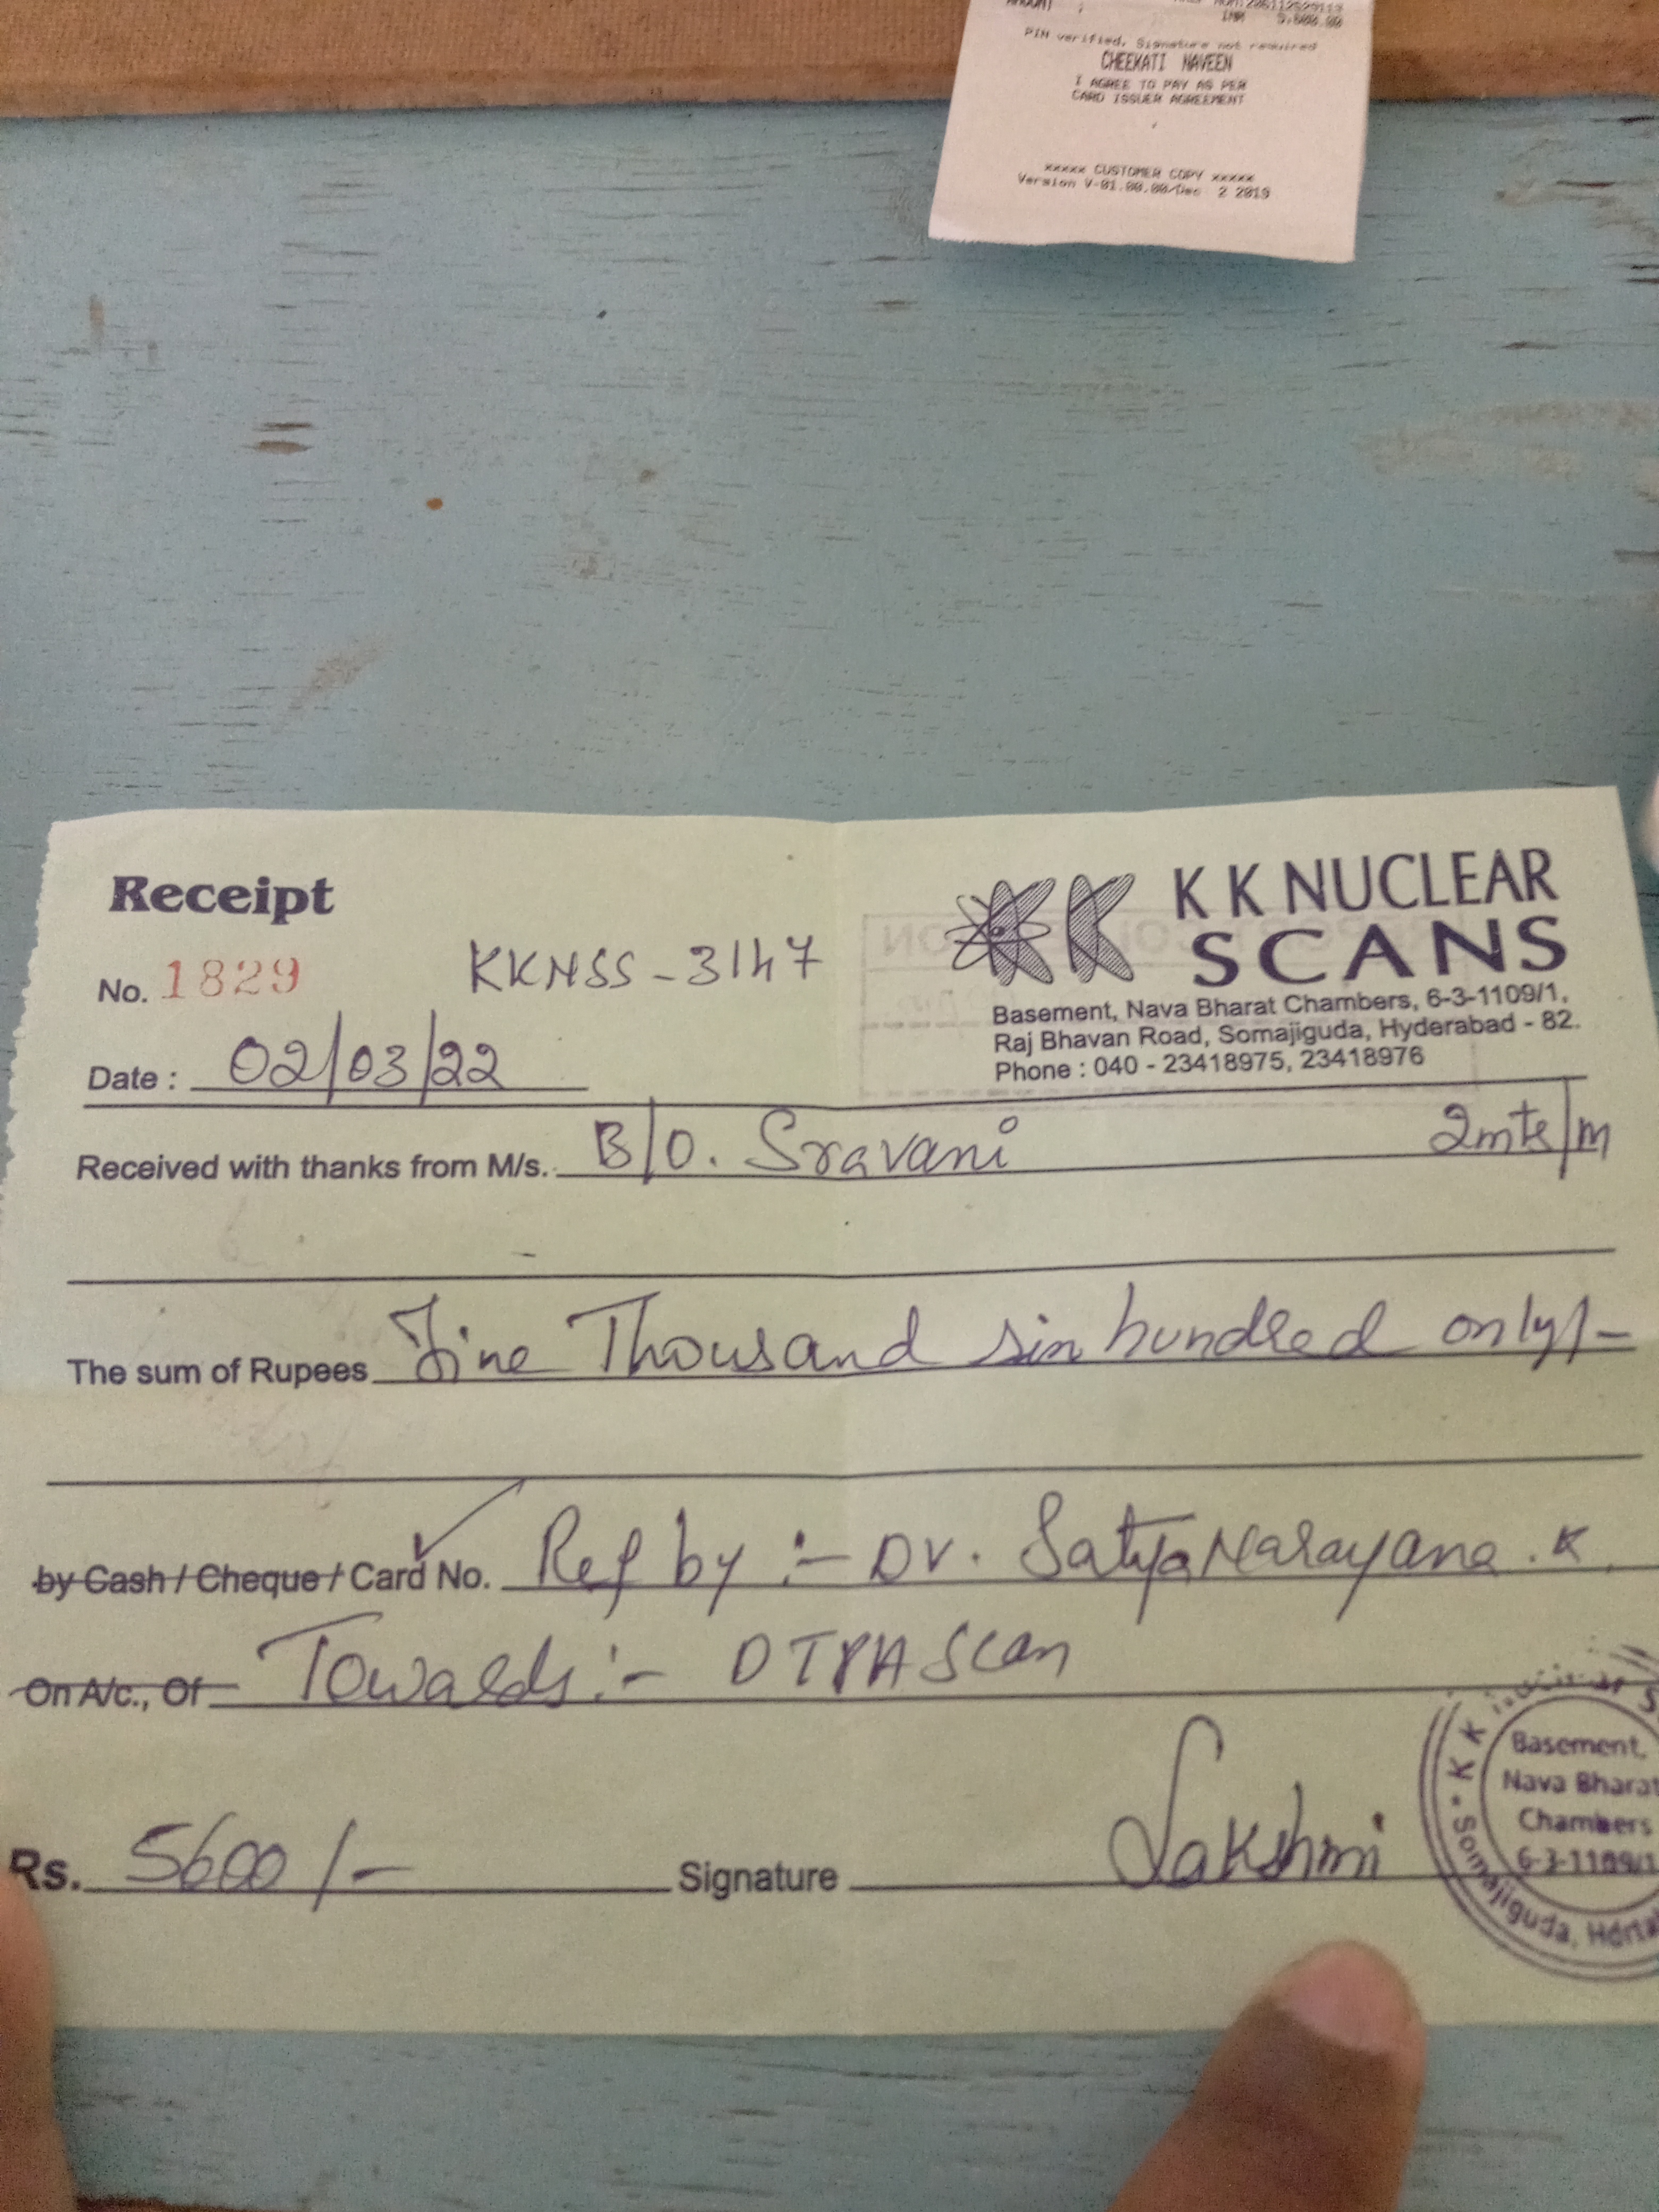 INR 5,600.00
PIN verified, Signature not required
CHEEKATI NAVEEN
I AGREE TO PAY AS PER
CARD ISSUER AGREEMENT
xxxxx CUSTOMER COPY xxxxx
Version V-01.00.00/Dec 2 2019
Receipt
KK NUCLEAR
SCANS
No. 1829
KKNSS-3147
Basement, Nava Bharat Chambers, 6-3-1109/1,
Raj Bhavan Road, Somajiguda, Hyderabad - 82.
Phone : 040 - 23418975, 23418976
Date : 02/03/22
Received with thanks from M/s. B/O. Sravani 2mts/m
The sum of Rupees Five Thousand six hundred only/-
by Cash / Cheque / Card No. Ref by :- Dr. SatyaNarayana.K
On A/c., Of Towards :- DTPA Scan
Rs. 5600/- Signature Lakshmi
K K Nuclear
Basement,
Nava Bharat
Chambers
6-3-1109/1
Somajiguda,